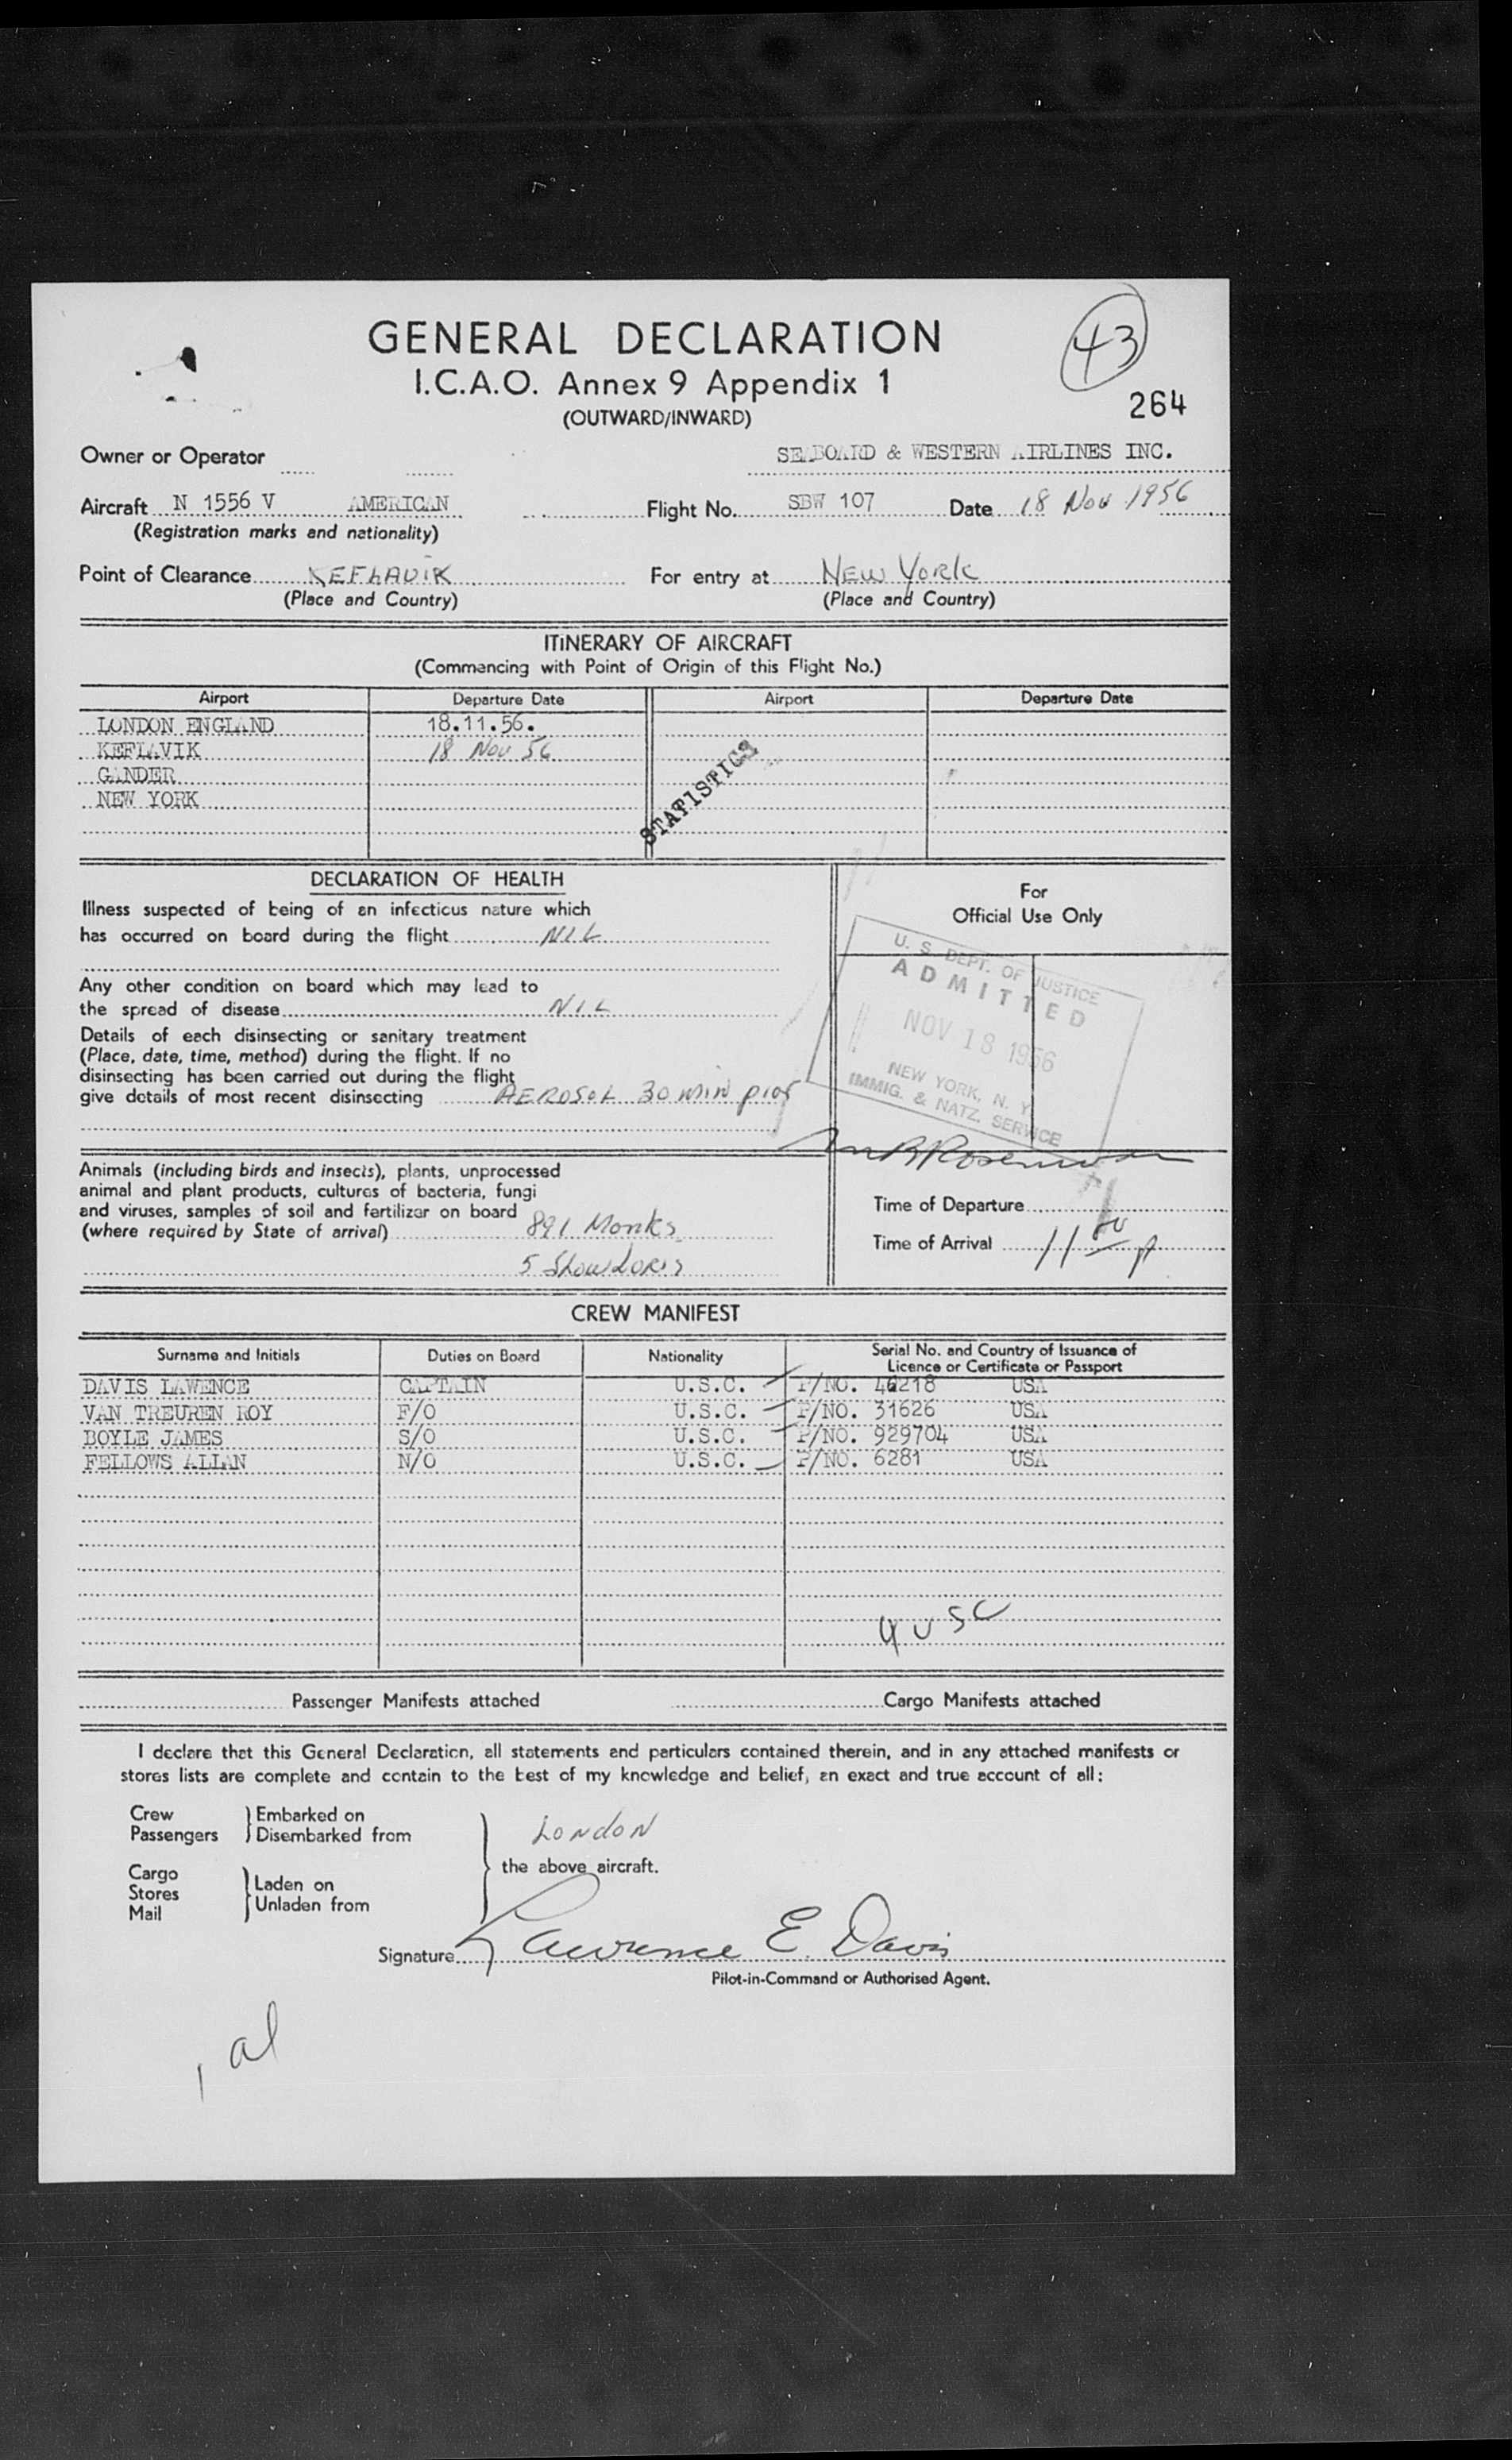 GENERAL DECLARATION
43
I.C.A.O. Annex 9 Appendix 1
264
(OUTWARD/INWARD)
Owner or Operator SEABOARD & WESTERN AIRLINES INC.
Aircraft N 1556 V AMERICAN Flight No. SBW 107 Date 18 Nov 1956
(Registration marks and nationality)
Point of Clearance KEFLAVIK For entry at New York
(Place and Country) (Place and Country)
ITINERARY OF AIRCRAFT
(Commencing with Point of Origin of this Flight No.)
Airport Departure Date Airport Departure Date
LONDON ENGLAND 18.11.56.
KEFLAVIK 18 Nov 56
GANDER
NEW YORK
STATISTICS
DECLARATION OF HEALTH
Illness suspected of being of an infectious nature which
has occurred on board during the flight NIL
Any other condition on board which may lead to
the spread of disease NIL
Details of each disinsecting or sanitary treatment
(Place, date, time, method) during the flight. If no
disinsecting has been carried out during the flight
give details of most recent disinsecting AEROSOL 30 MIN prior
For
Official Use Only
U. S. DEPT. OF JUSTICE
ADMITTED
NOV 18 1956
NEW YORK, N. Y.
IMMIG. & NATZ. SERVICE
Animals (including birds and insects), plants, unprocessed
animal and plant products, cultures of bacteria, fungi
and viruses, samples of soil and fertilizer on board
(where required by State of arrival) 891 Monks
5 Slow Loris
Time of Departure
Time of Arrival 11 00 p
CREW MANIFEST
Surname and Initials Duties on Board Nationality Serial No. and Country of Issuance of
Licence or Certificate or Passport
DAVIS LAWENCE CAPTAIN U.S.C. P/NO. 46218 USA
VAN TREUREN ROY F/O U.S.C. P/NO. 31626 USA
BOYLE JAMES S/O U.S.C. P/NO. 929704 USA
FELLOWS ALLAN N/O U.S.C. P/NO. 6281 USA
4 USC
Passenger Manifests attached Cargo Manifests attached
I declare that this General Declaration, all statements and particulars contained therein, and in any attached manifests or
stores lists are complete and contain to the best of my knowledge and belief, an exact and true account of all:
Crew
Passengers
Embarked on
Disembarked from
Cargo
Stores
Mail
Laden on
Unladen from
London
the above aircraft.
Signature Lawrence E. Davis
Pilot-in-Command or Authorised Agent.